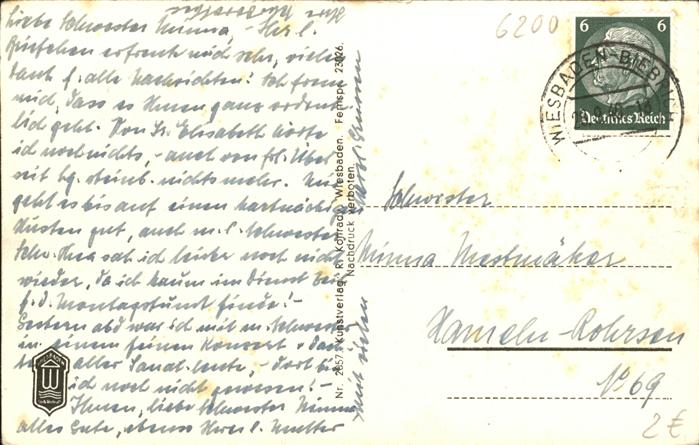 Liebe Schwester Minna, - Ihr l.
Briefchen erfreut mich sehr, vielen
Dank f. alle Nachrichten! Ich freue
mich, dass es Ihnen ganz ordent-
lich geht. Von Sr. Elisabeth hörte
ich noch nichts, - auch von
seit nichts mehr. Mir
geht es bis auf einen hartnäckigen
Husten gut, auch m. l. Schwester
Schw. Thea sah ich leider noch nicht
wieder, da ich kaum im Dienst Zeit
f. d. Montagstunde finde! -
Gestern abd war ich mit m. Schwester
in einem feinen Konzert
aller Saal
ich noch nicht gewesen! -
Ihnen, liebe Schwester Minna
alles Gute, ebenso Ihrer l. Mutter
Mit vielen
Nr. 2657. Kunstverlag R. Konrady, Wiesbaden. Fernspr. 23026.
Nachdruck verboten
W
6200
6 6
Deutsches Reich
WIESBADEN-BIEBRICH
Schwester
Minna Mestmäker
Hameln-Rohrsen
No 69
2 €